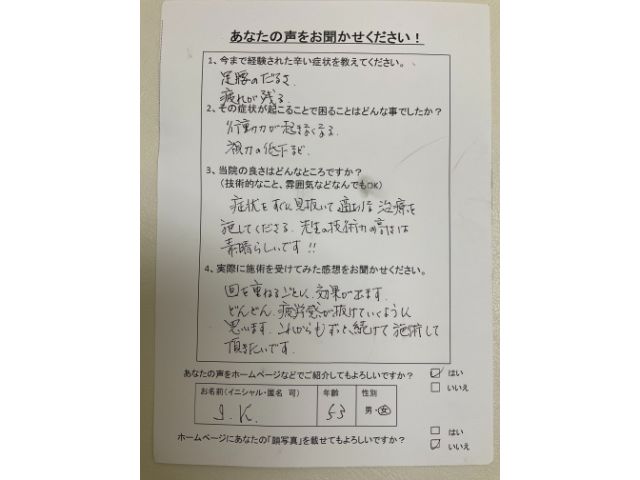 あなたの声をお聞かせください！
1、今まで経験された辛い症状を教えてください。
足腰のだるさ、
疲れが残る、
2、その症状が起こることで困ることはどんな事でしたか？
行動力が起きなくなる、
視力の低下など、
3、当院の良さはどんなところですか？
(技術的なこと、雰囲気などなんでもOK)
症状をすぐに見抜いて適切な治療を
施してくださる、先生の技術力の高さは
素晴らしいです!!
4、実際に施術を受けてみた感想をお聞かせください。
回を重ねるごとに、効果が出ます、
どんどん、疲労感が抜けていくように
思います、これからもずっと続けて施術して
頂きたいです。
あなたの声をホームページなどでご紹介してもよろしいですか？ ☑ はい
□ いいえ
お名前(イニシャル・匿名 可) 年齢 性別
I.K. 53 男・女
ホームページにあなたの「顔写真」を載せてもよろしいですか？ □ はい
☑ いいえ